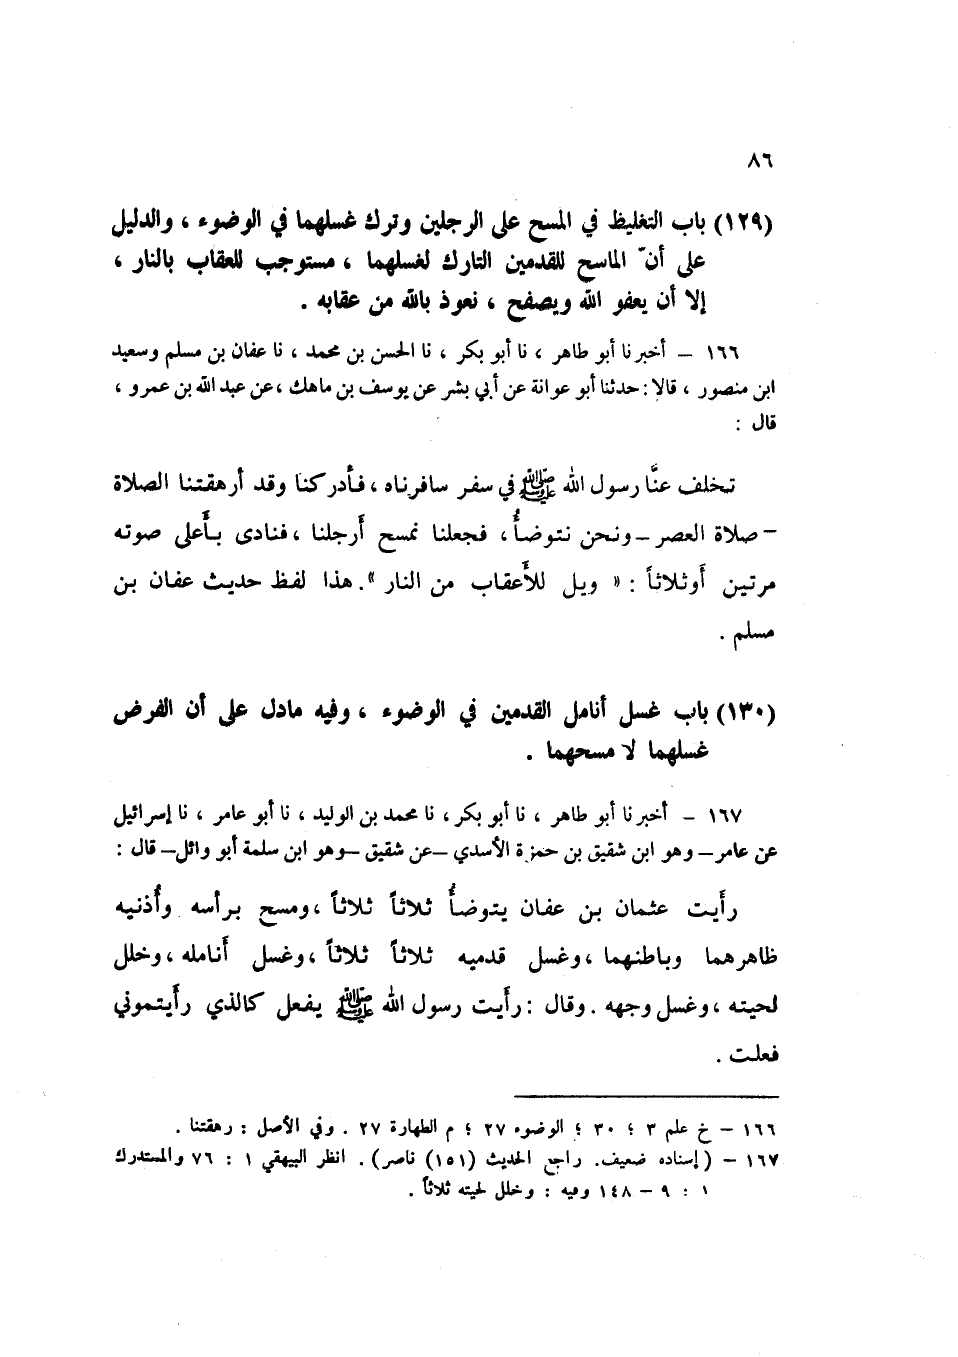 ٨٦
(١٢٩) باب التغليظ في المسح على الرجلين وترك غسلهما في الوضوء ، والدليل
على أنّ الماسح للقدمين التارك لغسلهما ، مستوجب للعقاب بالنار ،
إلا أن يعفو الله ويصفح ، نعوذ بالله من عقابه .
١٦٦ – أخبرنا أبو طاهر ، نا أبو بكر ، نا الحسن بن محمد ، نا عفان بن مسلم وسعيد
ابن منصور ، قالا : حدثنا أبو عوانة عن أبي بشر عن يوسف بن ماهك ، عن عبد الله بن عمرو ،
قال :
تخلف عنَّا رسول الله ﷺ في سفر سافرناه ، فأدركنا وقد أرهقتنا الصلاة
– صلاة العصر – ونحن نتوضأُ ، فجعلنا نمسح أَرجلنا ، فنادى بأَعلى صوته
مرتين أَوثلاثاً : « ويل للأَعقاب من النار » . هذا لفظ حديث عفان بن
مسلم .
(١٣٠) باب غسل أنامل القدمين في الوضوء ، وفيه مادل على أن الفرض
غسلهما لا مسحهما .
١٦٧ – أخبرنا أبو طاهر ، نا أبو بكر ، نا محمد بن الوليد ، نا أبو عامر ، نا إسرائيل
عن عامر – وهو ابن شقيق بن حمزة الأسدي – عن شقيق – وهو ابن سلمة أبو وائل – قال :
رأَيت عثمان بن عفان يتوضأُ ثلاثاً ثلاثاً ، ومسح برأسه وأُذنيه
ظاهرهما وباطنهما ، وغسل قدميه ثلاثاً ثلاثاً ، وغسل أَنامله ، وخلل
لحيته ، وغسل وجهه . وقال : رأَيت رسول الله ﷺ يفعل كالذي رأَيتموني
فعلت .
١٦٦ – خ علم ٣ ؛ ٣٠ ؛ الوضوء ٢٧ ؛ م الطهارة ٢٧ . وفي الأصل : رهقتنا .
١٦٧ – (إسناده ضعيف . راجع الحديث (١٥١) ناصر) . انظر البيهقي ١ : ٧٦ والمستدرك
١ : ٩ – ١٤٨ وفيه : وخلل لحيته ثلاثاً .